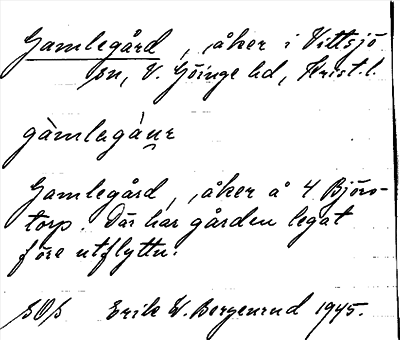 Gamlegård, åker i Vittsjö
sn, V. Göinge hd, Krist. l.
gàmlegáųr
Gamlegård, åker å 4 Björs-
torp. Där har gården legat
före utflyttn.
SOS Erik W. Bergenrud 1945.